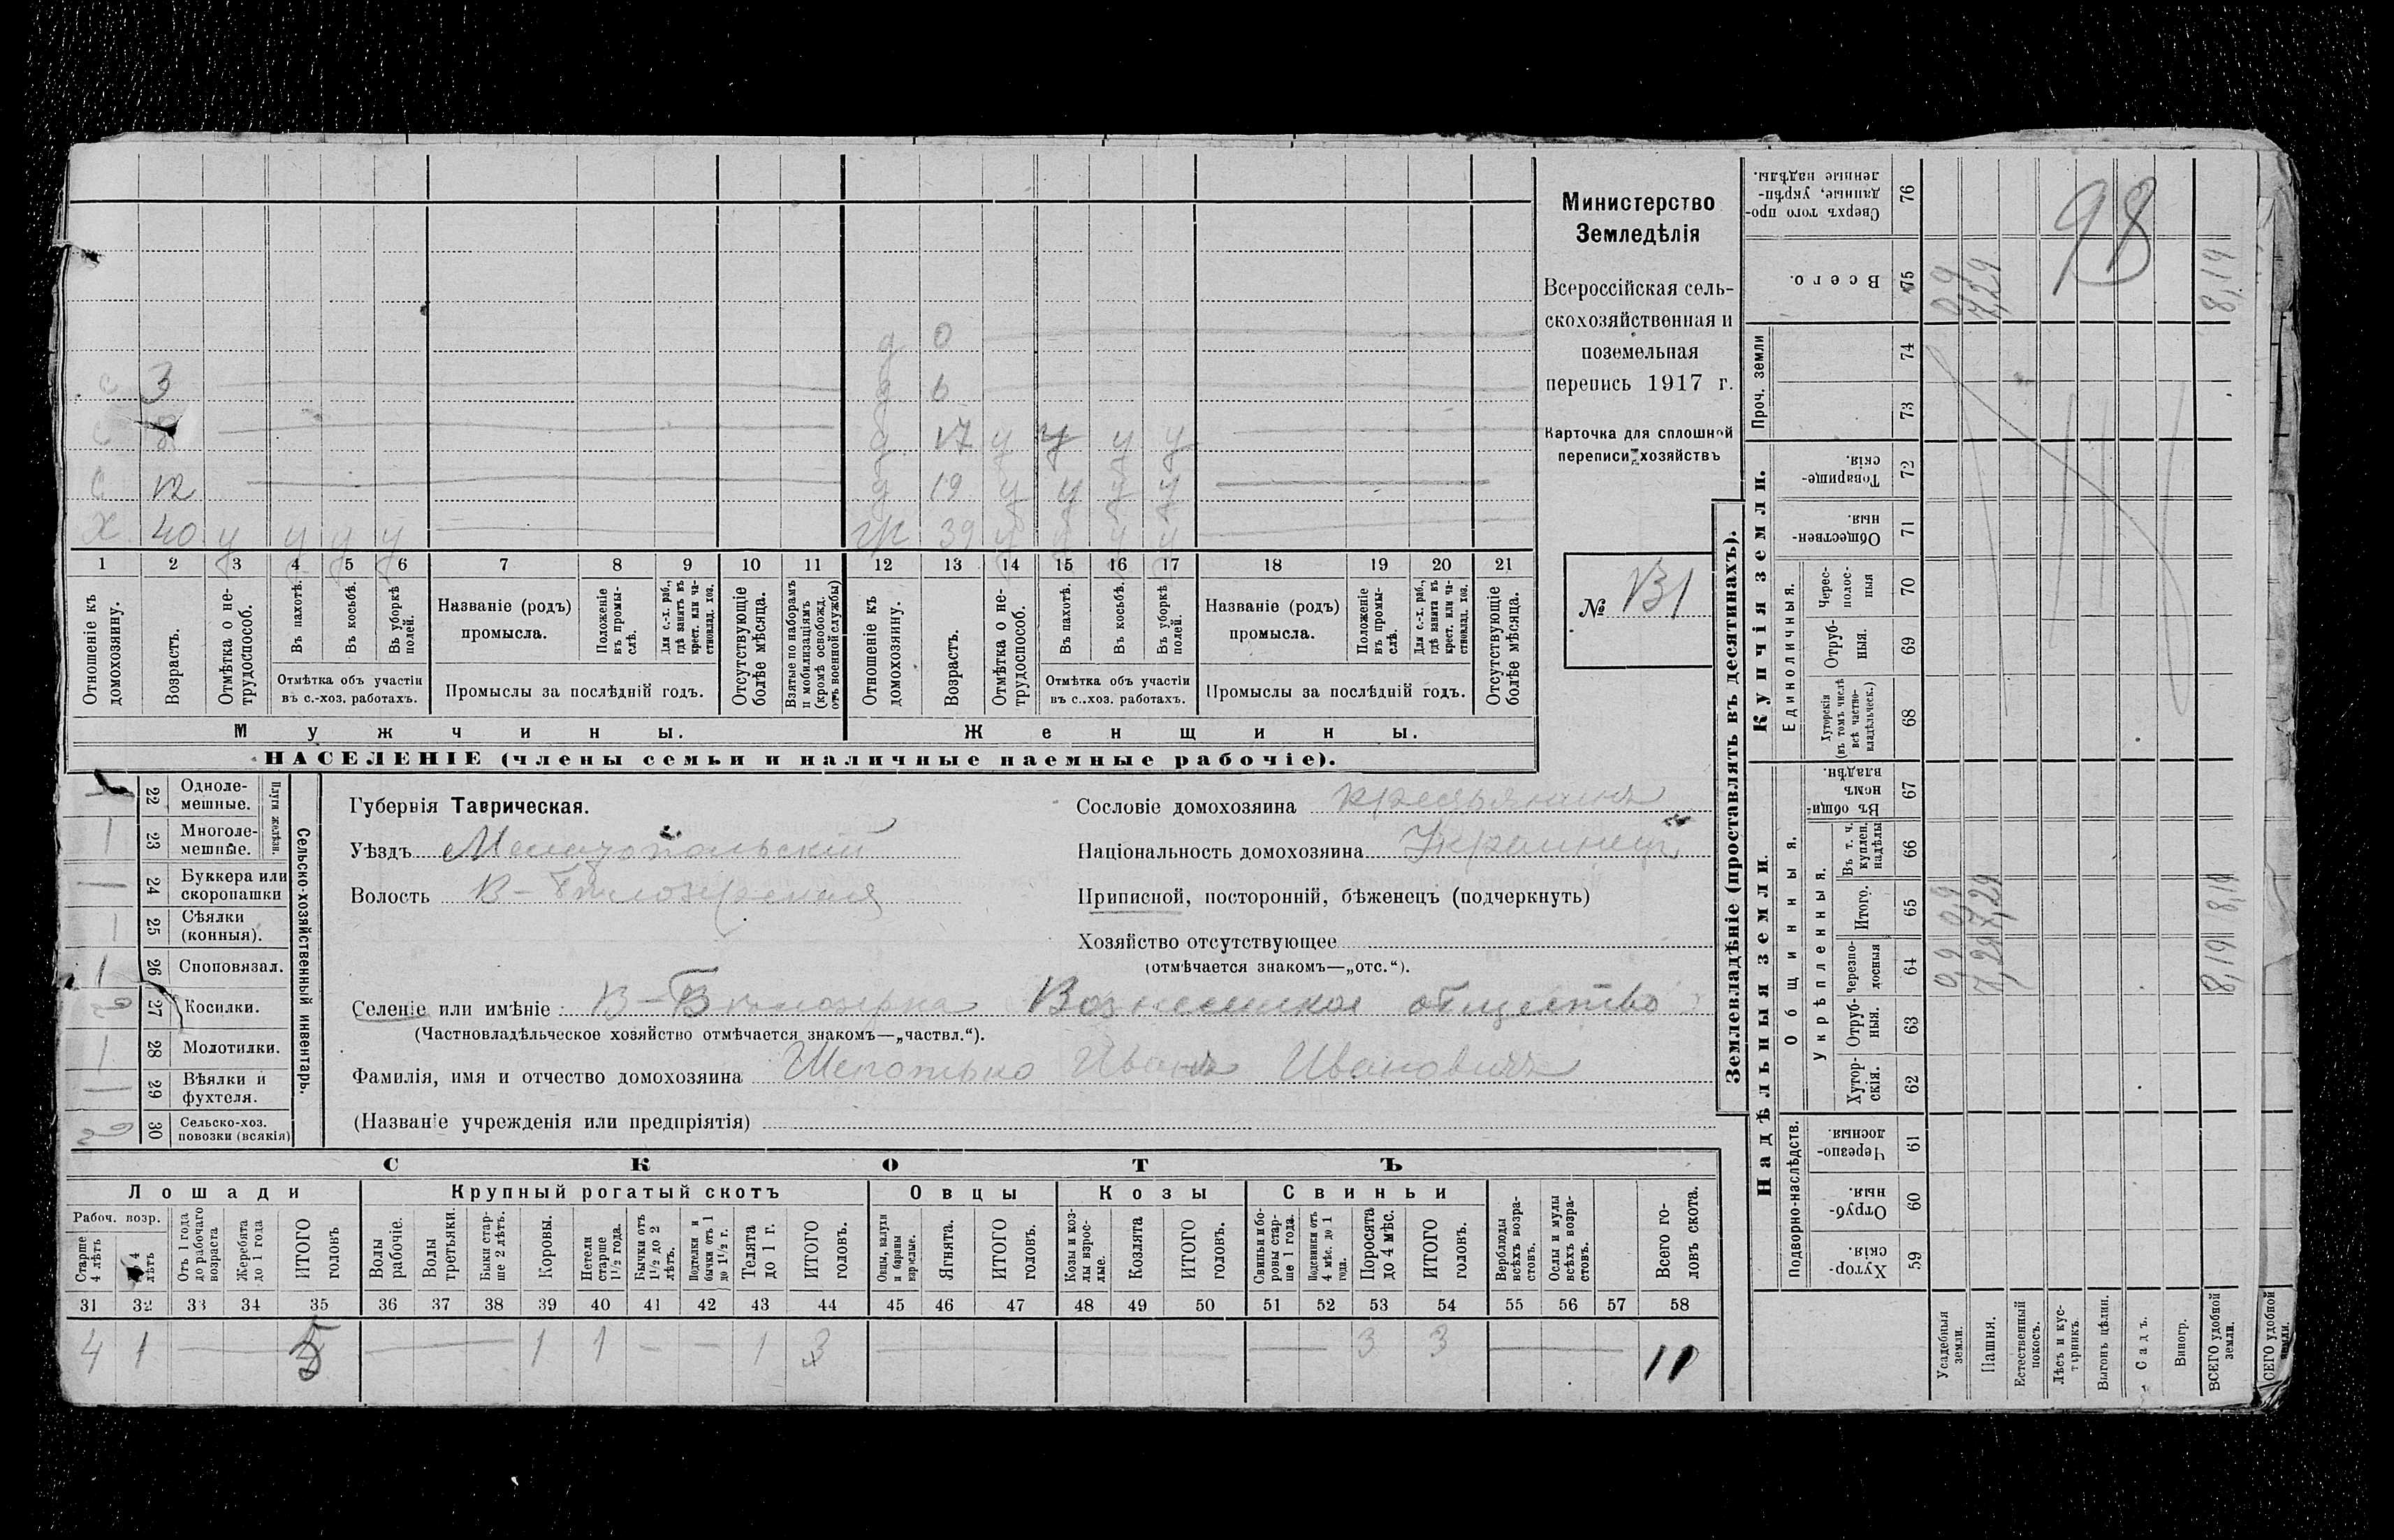 с 3
с 8
с 12
х 40 у у у у
д 0
д 6
д 17 у у у у
д 19 у у у у
ж 39 у у у у
1 2 3 4 5 6 7 8 9 10 11 12 13 14 15 16 17 18 19 20 21
Отношеніе къ домохозяину.
Возрастъ.
Отмѣтка о не-трудоспособ.
Въ пахотѣ.
Въ косьбѣ.
Въ уборкѣ полей.
Отмѣтка объ участіи
въ с.-хоз. работахъ.
Названіе (родъ)
промысла.
Положеніе въ промы-слѣ.
Для с.-х. раб., гдѣ занятъ въ крест. или ча-стновлад. хоз.
Промыслы за послѣдній годъ.
Отсутствующіе болѣе мѣсяца.
Взятые по наборамъ и мобилизаціямъ (кромѣ освобожд. отъ военной службы)
Отношеніе къ домохозяину.
Возрастъ.
Отмѣтка о не-трудоспособ.
Въ пахотѣ.
Въ косьбѣ.
Въ уборкѣ полей.
Отмѣтка объ участіи
въ с..хоз. работахъ.
Названіе (родъ)
промысла.
Положеніе въ промы-слѣ.
Для с.-х. раб., гдѣ занята въ крест. или ча-стновлад. хоз.
Промыслы за послѣдній годъ.
Отсутствующіе болѣе мѣсяца.
Мужчины.
Женщины.
НАСЕЛЕНІЕ (члены семьи и наличные наемные рабочіе).
Министерство
Земледѣлія
Всероссійская сель-
скохозяйственная и
поземельная
перепись 1917 г.
Карточка для сплошной
переписи хозяйствъ
№ 131
22 Одноле-мешные.
1 23 Многоле-мешные.
Плуги желѣзн.
— 24 Буккера или скоропашки
1 25 Сѣялки (конныя).
1 26 Споповязал.
2 27 Косилки.
1 28 Молотилки.
— 29 Вѣялки и фухтеля.
2 30 Сельско-хоз. повозки (всякія)
Сельско-хозяйственный инвентарь.
Губернія Таврическая.
Уѣздъ Мелитопольскій
Волость В-Бѣлозерская
Сословіе домохозяина крестьянинъ
Національность домохозяина Украинецъ
Приписной, посторонній, бѣженецъ (подчеркнуть)
Хозяйство отсутствующее
(отмѣчается знакомъ—„отс.“).
Селеніе или имѣніе В-Бѣлозерка Вознесенское общество
(Частновладѣльческое хозяйство отмѣчается знакомъ—„частвл.“).
Фамилія, имя и отчество домохозяина Шепотько Иванъ Ивановичъ
(Названіе учрежденія или предпріятія)
СКОТЪ
Лошади
Крупный рогатый скотъ
Овцы
Козы
Свиньи
Рабоч. возр.
Старше 4 лѣтъ
4 лѣтъ
Отъ 1 года до рабочаго возраста
Жеребята до 1 года
ИТОГО головъ
Волы рабочіе.
Волы третьяки.
Быки стар-ше 2 лѣтъ.
Коровы.
Нетели старше 1½ года.
Бычки отъ 1½ до 2 лѣтъ.
Подтелки и бычки отъ 1 до 1½ г.
Телята до 1 г.
ИТОГО головъ.
Овцы, валухи и бараны взрослые.
Ягнята.
ИТОГО головъ.
Козы и коз-лы взрос-лые.
Козлята
ИТОГО головъ.
Свиньи и бо-ровы стар-ше 1 года.
Подсвинки отъ 4 мѣс. до 1 года.
Поросята до 4 мѣс.
ИТОГО головъ.
Верблюды всѣхъ возра-стовъ.
Ослы и мулы всѣхъ возра-стовъ.
Всего го-ловъ скота.
31 32 33 34 35 36 37 38 39 40 41 42 43 44 45 46 47 48 49 50 51 52 53 54 55 56 57 58
4 1 — 5 — 1 1 — — 1 3 — — 3 3 — 11
Землевладѣніе (проставлять въ десятинахъ).
Надѣльныя земли.
Купчія земли.
Проч. земли
Подворно-наслѣдств.
Общинныя.
Укрѣпленныя.
Единоличныя.
Сверхъ того про-данные, укрѣп-ленные надѣлы. 76
Всего. 75
74
73
Товарище-скія. 72
Обществен-ныя. 71
Черес-полос-ныя 70
Отруб-ныя. 69
Хуторскія (въ томъ числѣ всѣ частно-владѣльческ.) 68
Въ общин-номъ владѣн. 67
Въ т. ч. куплен. надѣлы 66
Итого. 65
Черезпо-лосныя 64
Отруб-ныя. 63
Хутор-скія. 62
Черезпо-лосныя. 61
Отруб-ныя. 60
Хутор-скія. 59
Усадебныя земли.
Пашня.
Естественный покосъ.
Лѣсъ и кус-тарникъ.
Выгонъ цѣлин.
Садъ.
Виногр.
ВСЕГО удобной земли.
ВСЕГО удобной земли.
0,9 0,9 0,9
7,29 7,29 7,29
8,19 8,19 8,19
98